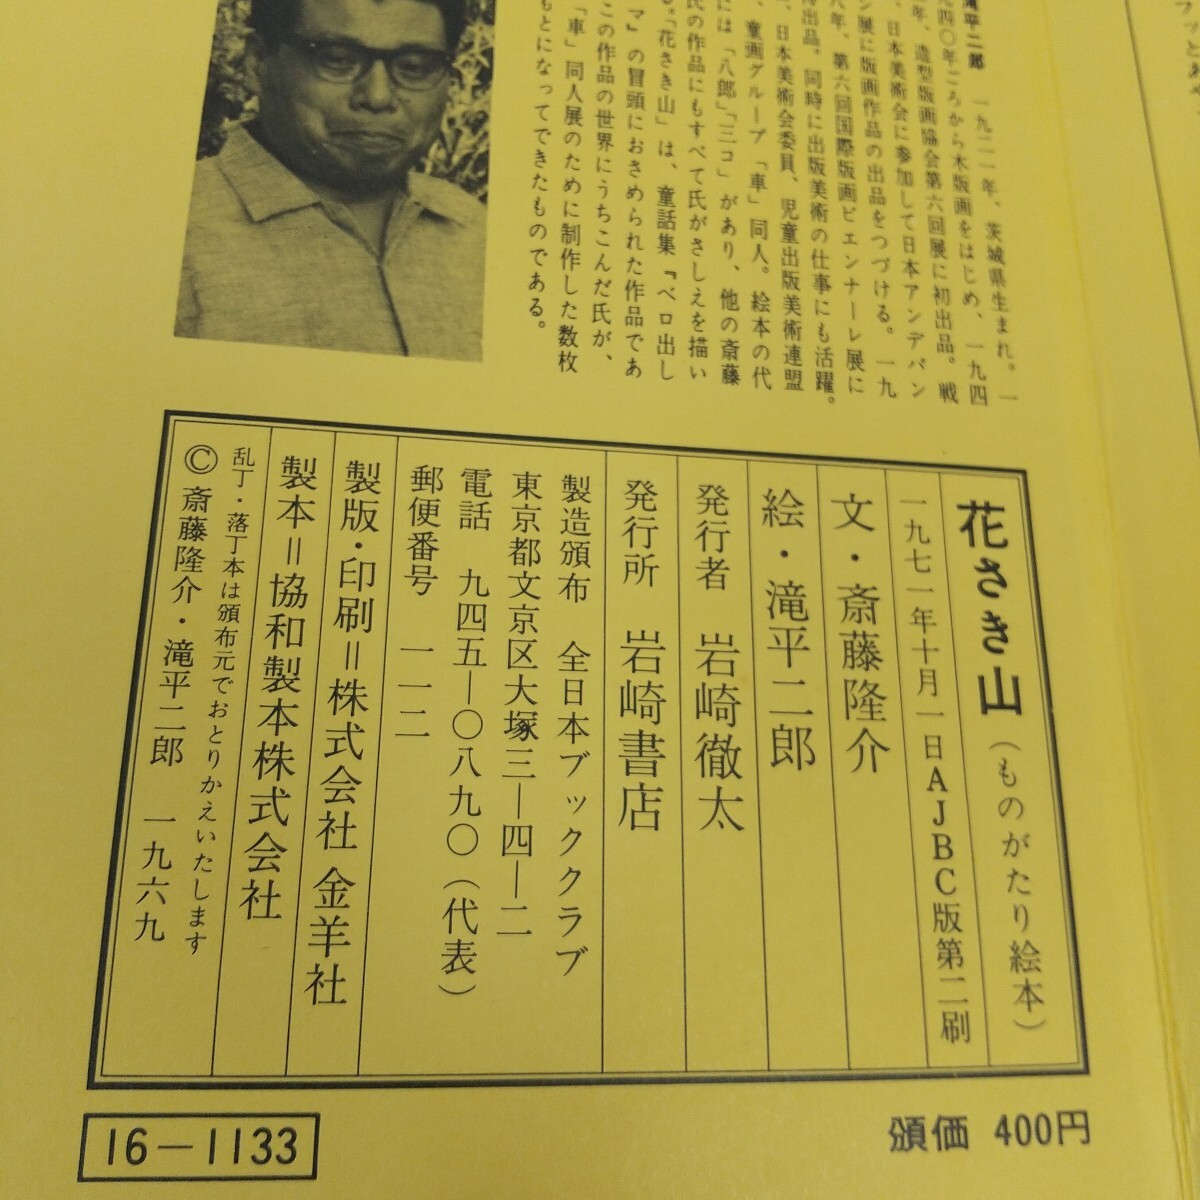 滝平二郎 一九二一年、茨城県生まれ。一
九四〇年ごろから木版画をはじめ、一九四
年、造型版画協会第六回展に初出品。戦
、日本美術会に参加して日本アンデパン
ン展に版画作品の出品をつづける。一九
八年、第六回国際版画ビエンナーレ展に
待出品。同時に出版美術の仕事にも活躍。
、日本美術会委員、児童出版美術連盟
、童画グループ「車」同人。絵本の代
には「八郎」「三コ」があり、他の斎藤
氏の作品にもすべて氏がさしえを描い
る。「花さき山」は、童話集『ベロ出し
マ』の冒頭におさめられた作品であ
この作品の世界にうちこんだ氏が、
「車」同人展のために制作した数枚
もとになってできたものである。
花さき山(ものがたり絵本)
一九七一年十月一日AJBC版第二刷
文・斎藤隆介
絵・滝平二郎
発行者 岩崎徹太
発行所 岩崎書店
製造頒布 全日本ブッククラブ
東京都文京区大塚三―四―二
電話 九四五―〇八九〇(代表)
郵便番号 一一二
製版・印刷=株式会社 金羊社
製本=協和製本株式会社
乱丁・落丁本は頒布元でおとりかえいたします
© 斎藤隆介・滝平二郎 一九六九
16-1133
頒価 400円